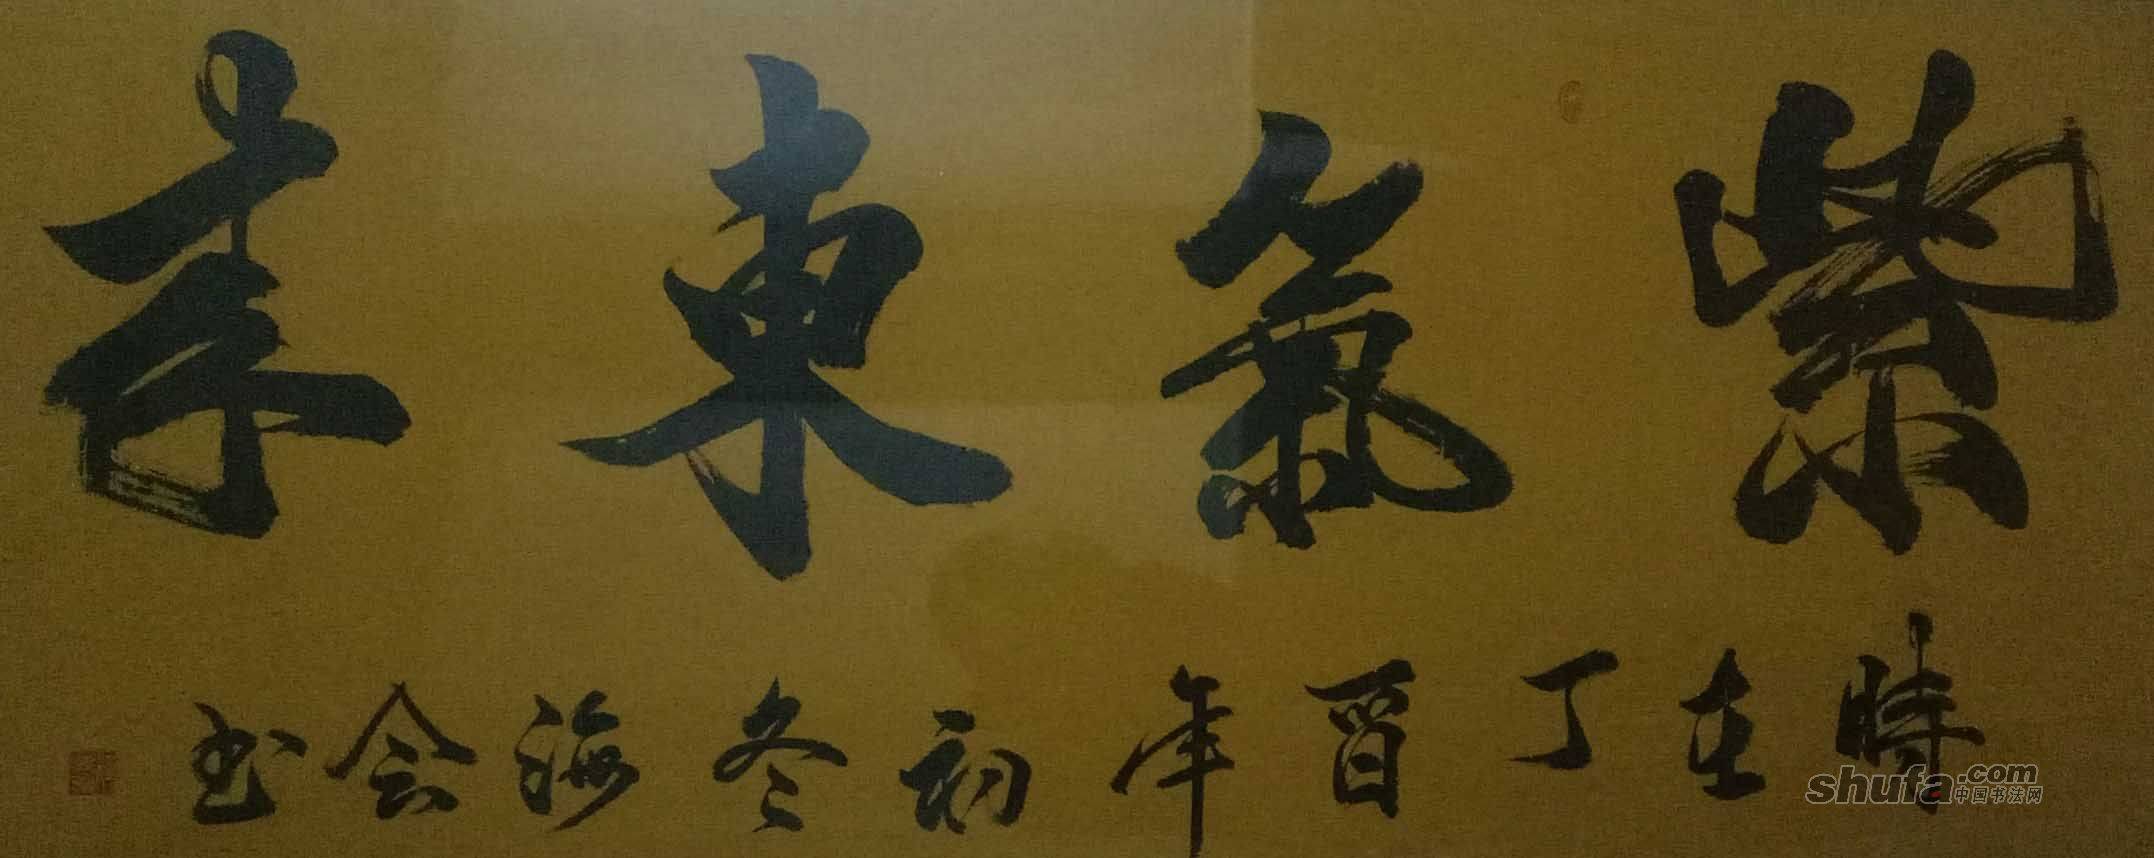 紫氣東来
時在丁酉年初冬海会书
shufa.com
中国书法网